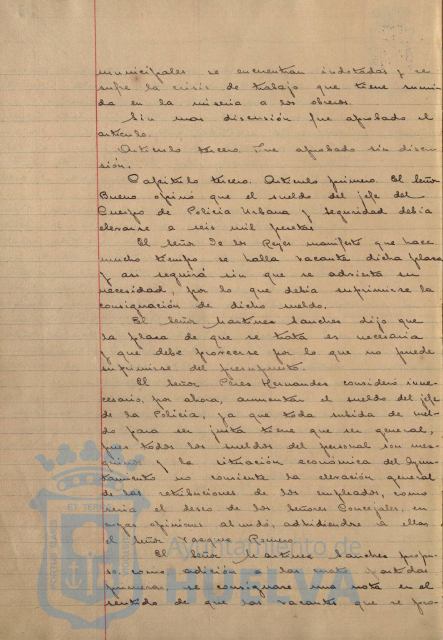 municipales se encuentran indotadas y se
sufre la crisis de trabajo que tiene sumi
da en la miseria a los obreros.
Sin mas discusión fue aprobado el
artículo.
Artículo tercero. Fue aprobado sin discu
sión.
Capítulo tercero. Artículo primero. El señor
Bueno opinó que el sueldo del jefe del
Cuerpo de Policía Urbana y seguridad debía
elevarse a seis mil pesetas
El señor De los Reyes manifestó que hace
mucho tiempo se halla vacante dicha plaza
y así seguirá sin que se advierta su
necesidad, por lo que debía suprimirse la
consignación de dicho sueldo.
El señor Martinez Sanchez dijo que
la plaza de que se trata es necesaria
y que debe proveerse por lo que no puede
suprimirse del presupuesto.
El señor Pérez Hernandez consideró inne
cesario, por ahora, aumentar el sueldo del jefe
de la Policía, ya que toda subida de suel
do para ser justa tiene que ser general,
pues todos los sueldos del personal son mez
quinos y la situación económica del Ayun
tamiento no consiente la elevación general
de las retribuciones de los empleados, como
sería el deseo de los señores Concejales, en
cuyas opiniones abundo, adhiriendose a ellas
el señor Romero
El señor Martinez Sanchez propu
so como adición a las partidas
primeras, se consignare una nota en el
sentido de que las vacantes que se pro-
Ayuntamiento de
HUELVA